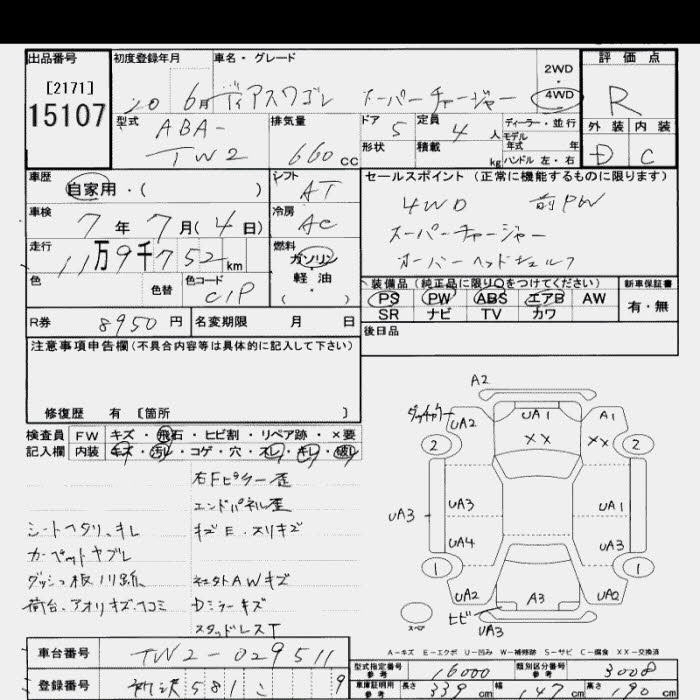 出品番号 初度登録年月 車名・グレード 評価点
[2171]
15107
20 6月 ディアスワゴン スーパーチャージャー
2WD
4WD
R
型式 ABA-
TW2
排気量 660cc
ドア 5
定員 4人
形状 積載 kg
ディーラー・並行
モデル
年式 年
ハンドル 左・右
外装 内装
D C
車歴 自家用・( )
シフト AT
セールスポイント (正常に機能するものに限ります)
4WD 前PW
スーパーチャージャー
オーバーヘッドシェルフ
車検 7年7月(4日)
冷房 AC
走行 11万9千752km
燃料 ガソリン
軽油
・( )
色 色替 色コード C1P
装備品(純正品に限り○をつけてください) 新車保証書
PS PW ABS エアB AW 有・無
SR ナビ TV カワ
R券 8950円 名変期限 月 日
後日品
注意事項申告欄(不具合内容等は具体的に記入して下さい)
修復歴 有 〔箇所 〕
検査員 FW キズ・飛石・ヒビ割・リペア跡・×要
記入欄 内装 キズ・汚レ・コゲ・穴・スレ・キレ・破レ
右Fピラー歪
エンドパネル歪
シートヘタリ、キレ キズE、スリキズ
カーペットヤブレ
荷台、アオリキズヘコミ Dミラーキズ
スタッドレスT
A2
UA2 UA1 A1
×× ××
2 2
UA3 UA3 UA1
UA4 UA3
1 1
UA2 A3 UA2
スペア ヒビ UA3
A-キズ E-エクボ U-凹み W-補修跡 S-サビ C-腐食 XX-交換済
車台番号 TW2-029511
登録番号 581 こ 9
型式指定番号 参考 16000 類別区分番号 参考 3008
車庫証明用 参考 長さ 339cm 幅 147cm 高さ 190cm